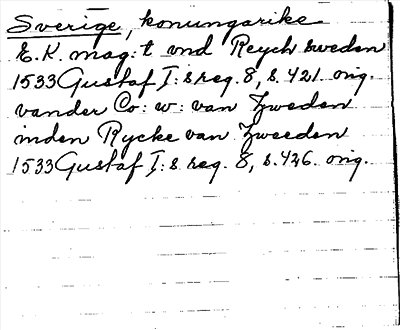 Sverige, konungarike
E. K. mag: t vnd Reych sweden
1533 Gustaf I: s reg. 8, s. 421. orig.
vander Co: w: van Zweden
inden Rycke van Zweeden
1533 Gustaf I: s reg. 8, s. 426. orig.